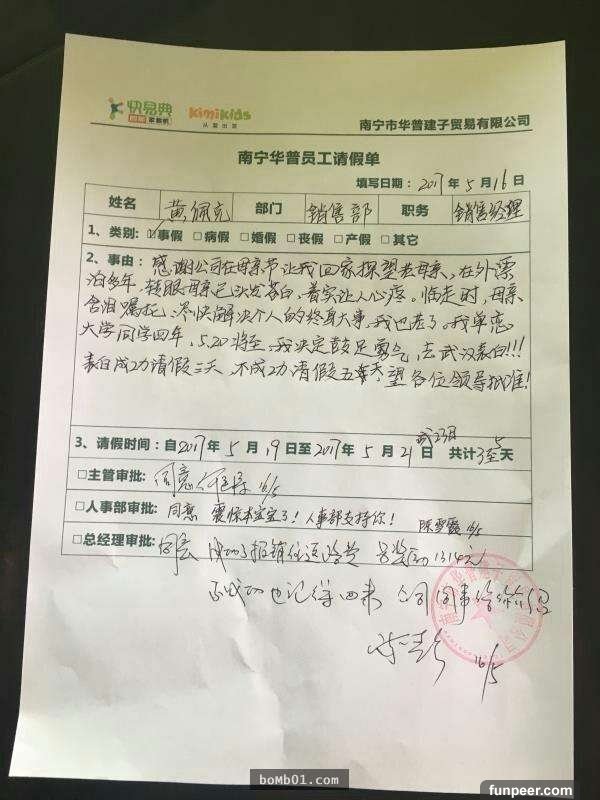 快易典
kimikids
从爱出发
南宁市华普建子贸易有限公司
南宁华普员工请假单
填写日期：2017年5月16日
姓名 黄佩克 部门 销售部 职务 销售经理
1、类别：☑事假 □病假 □婚假 □丧假 □产假 □其它
2、事由：感谢公司在母亲节让我回家探望老母亲，在外漂
泊多年，转眼母亲已头发苍白，着实让人心疼。临走时，母亲
含泪嘱托，尽快解决个人的终身大事，我也老了。我单恋
大学同学四年，5.20将至，我决定鼓足勇气，去武汉表白!!!
表白成功请假三天，不成功请假五天，望各位领导批准!
3、请假时间：自2017年5月19日至2017年5月21日 或23日 共计3至5天
□主管审批：同意 16/5
□人事部审批：同意 震惊本宝宝了！人事部支持你！ 陈雪 16/5
□总经理审批：同意 成功了报销往返路费 另奖励1314元
不成功也记得回来 公司同事给你介绍
16/5
boMb01.com
funpeer.com